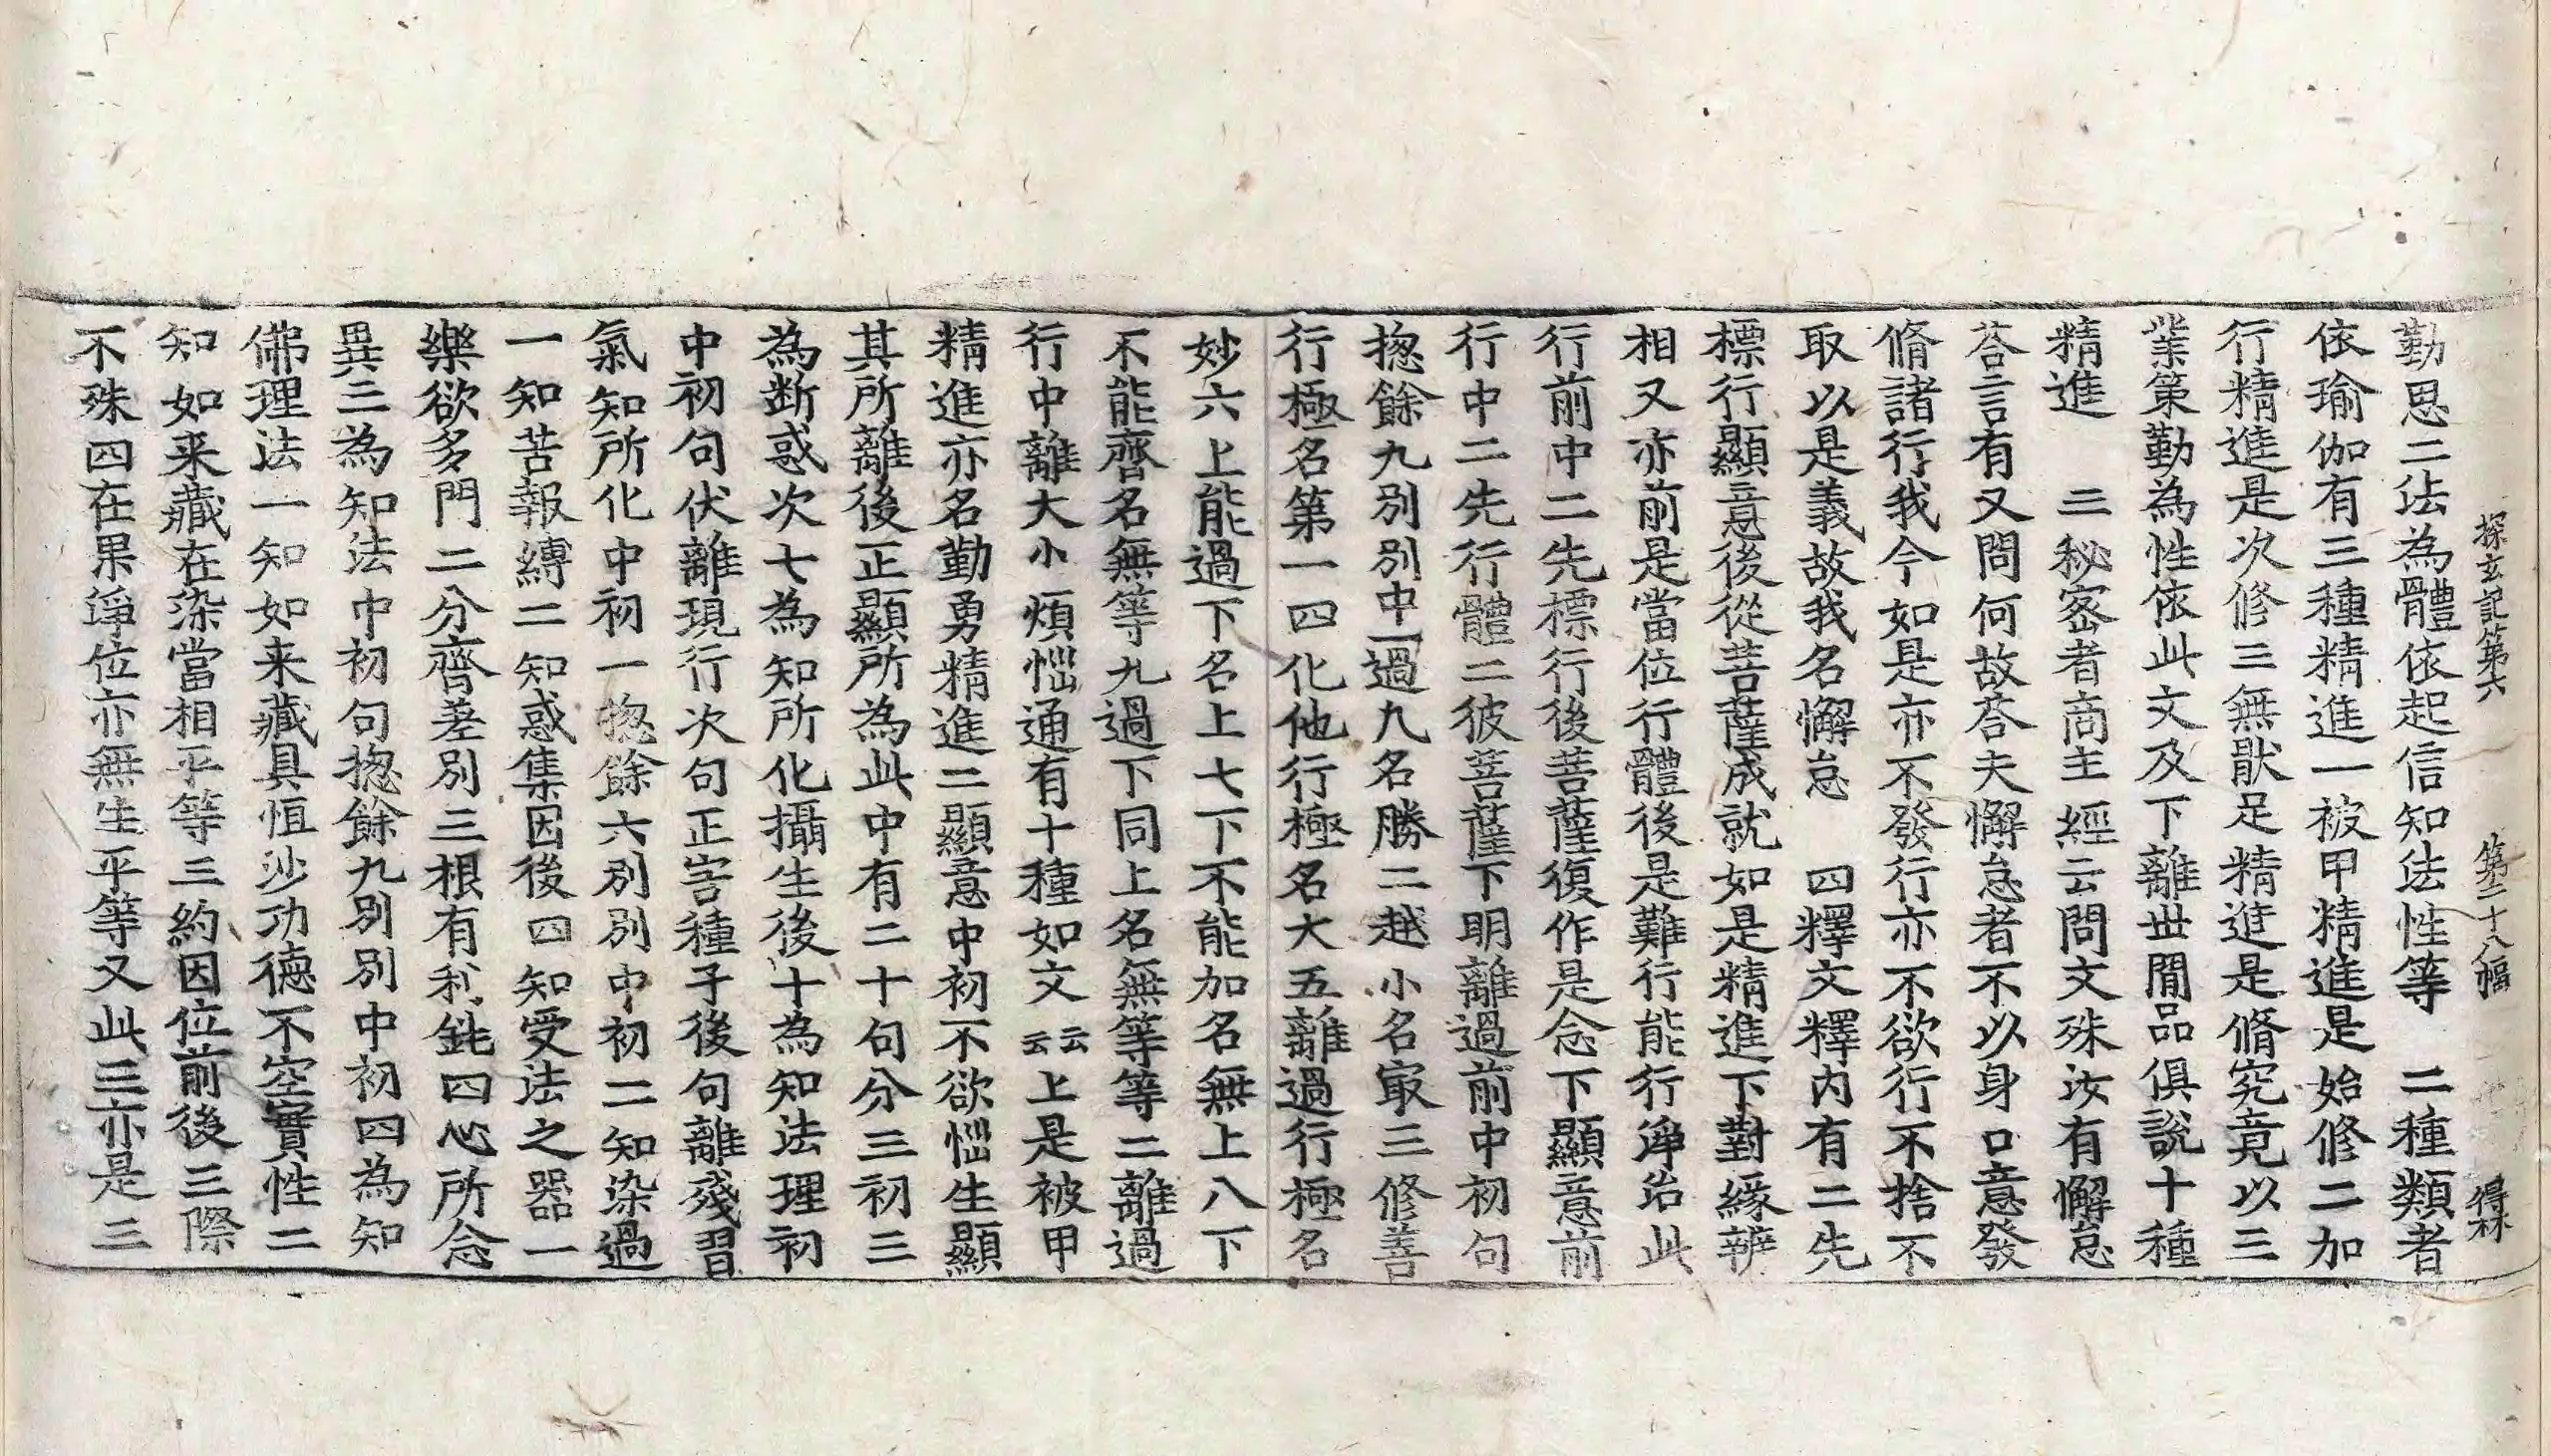 探玄記第六　第二十八幅　得林
勤思二法為體依起信知法性等　二種類者
依瑜伽有三種精進一被甲精進是始修二加
行精進是次修三無猒足精進是脩究竟以三
業策勤為性依此文及下離世閒品俱說十種
精進　三秘密者商主經云問文殊汝有懈怠
荅言有又問何故荅夫懈怠者不以身口意發
脩諸行我今如是亦不發行亦不欲行不捨不
取以是義故我名懈怠　四釋文釋內有二先
標行顯意後從菩薩成就如是精進下對緣辨
相又亦前是當位行體後是難行能行淨治此
行前中二先標行後菩薩復作是念下顯意前
行中二先行體二彼菩薩下明離過前中初句
揔餘九別別中一過九名勝二越小名㝡三修善
行極名第一四化他行極名大五離過行極名
妙六上能過下名上七下不能加名無上八下
不能齊名無等九過下同上名無等等二離過
行中離大小煩惱通有十種如文云云上是被甲
精進亦名勤勇精進二顯意中初不欲惱生顯
其所離後正顯所為此中有二十句分三初三
為断惑次七為知所化攝生後十為知法理初
中初句伏離現行次句正害種子後句離殘習
氣知所化中初一揔餘六別別中初二知染過
一知苦報縛二知惑集因後四知受法之器一
樂欲多門二分齊差別三根有利鈍四心所念
異三為知法中初句揔餘九別別中初四為知
佛理法一知如来藏具恒沙功德不空實性二
知如来藏在染當相平等三約因位前後三際
不殊四在果淨位亦無生平等又此三亦是三